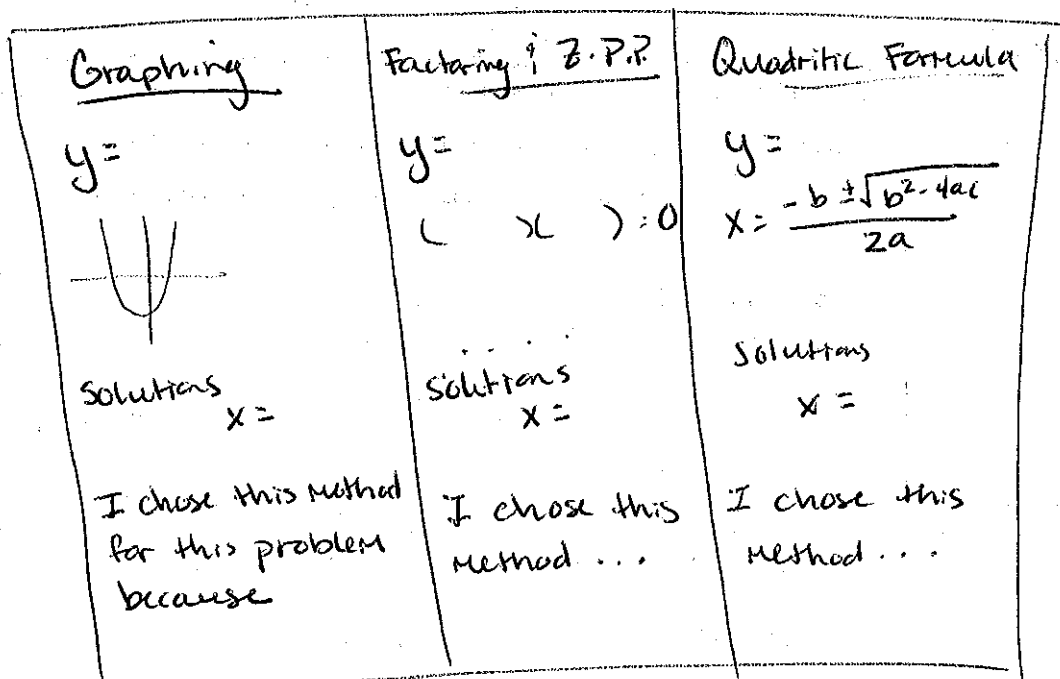 Graphing
y=
Solutions
x=
I chose this method
for this problem
because
Factoring & Z.P.P.
y=
(  )(  )=0
Solutions
x=
I chose this
method ...
Quadritic Formula
y=
x= -b ±√b²-4ac
2a
Solutions
x=
I chose this
method ...